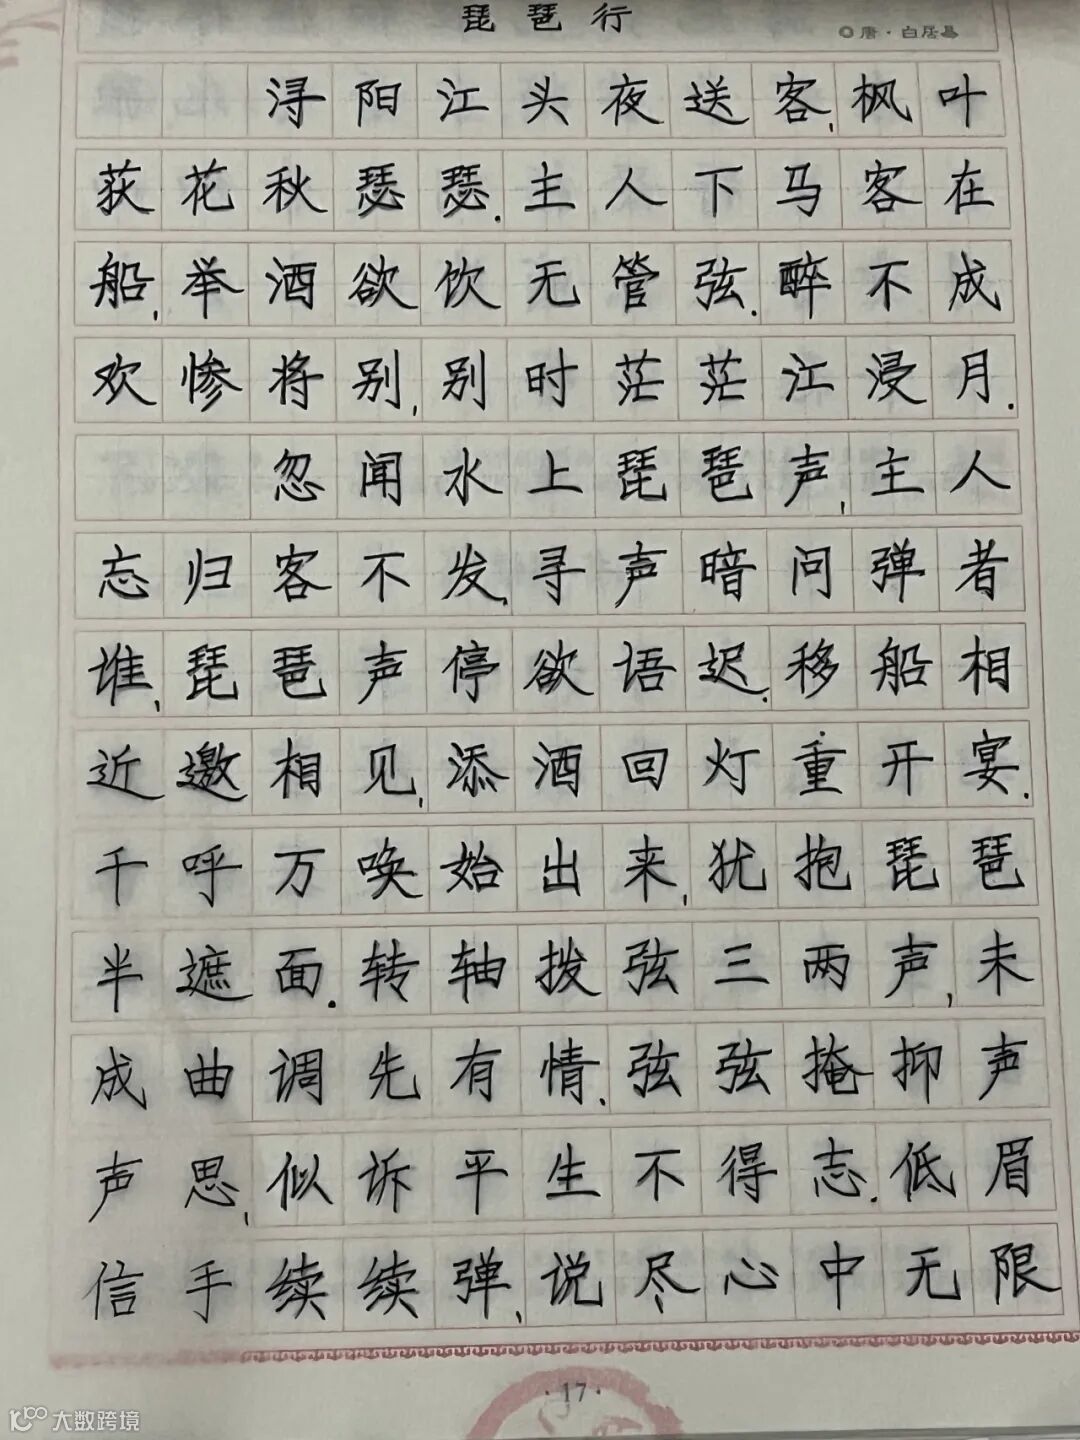 琵琶行
◎唐·白居易
浔阳江头夜送客,枫叶
荻花秋瑟瑟.主人下马客在
船,举酒欲饮无管弦.醉不成
欢惨将别,别时茫茫江浸月.
忽闻水上琵琶声,主人
忘归客不发,寻声暗问弹者
谁,琵琶声停欲语迟.移船相
近邀相见,添酒回灯重开宴.
千呼万唤始出来,犹抱琵琶
半遮面.转轴拨弦三两声,未
成曲调先有情.弦弦掩抑声
声思,似诉平生不得志.低眉
信手续续弹,说尽心中无限
·17·
大数跨境